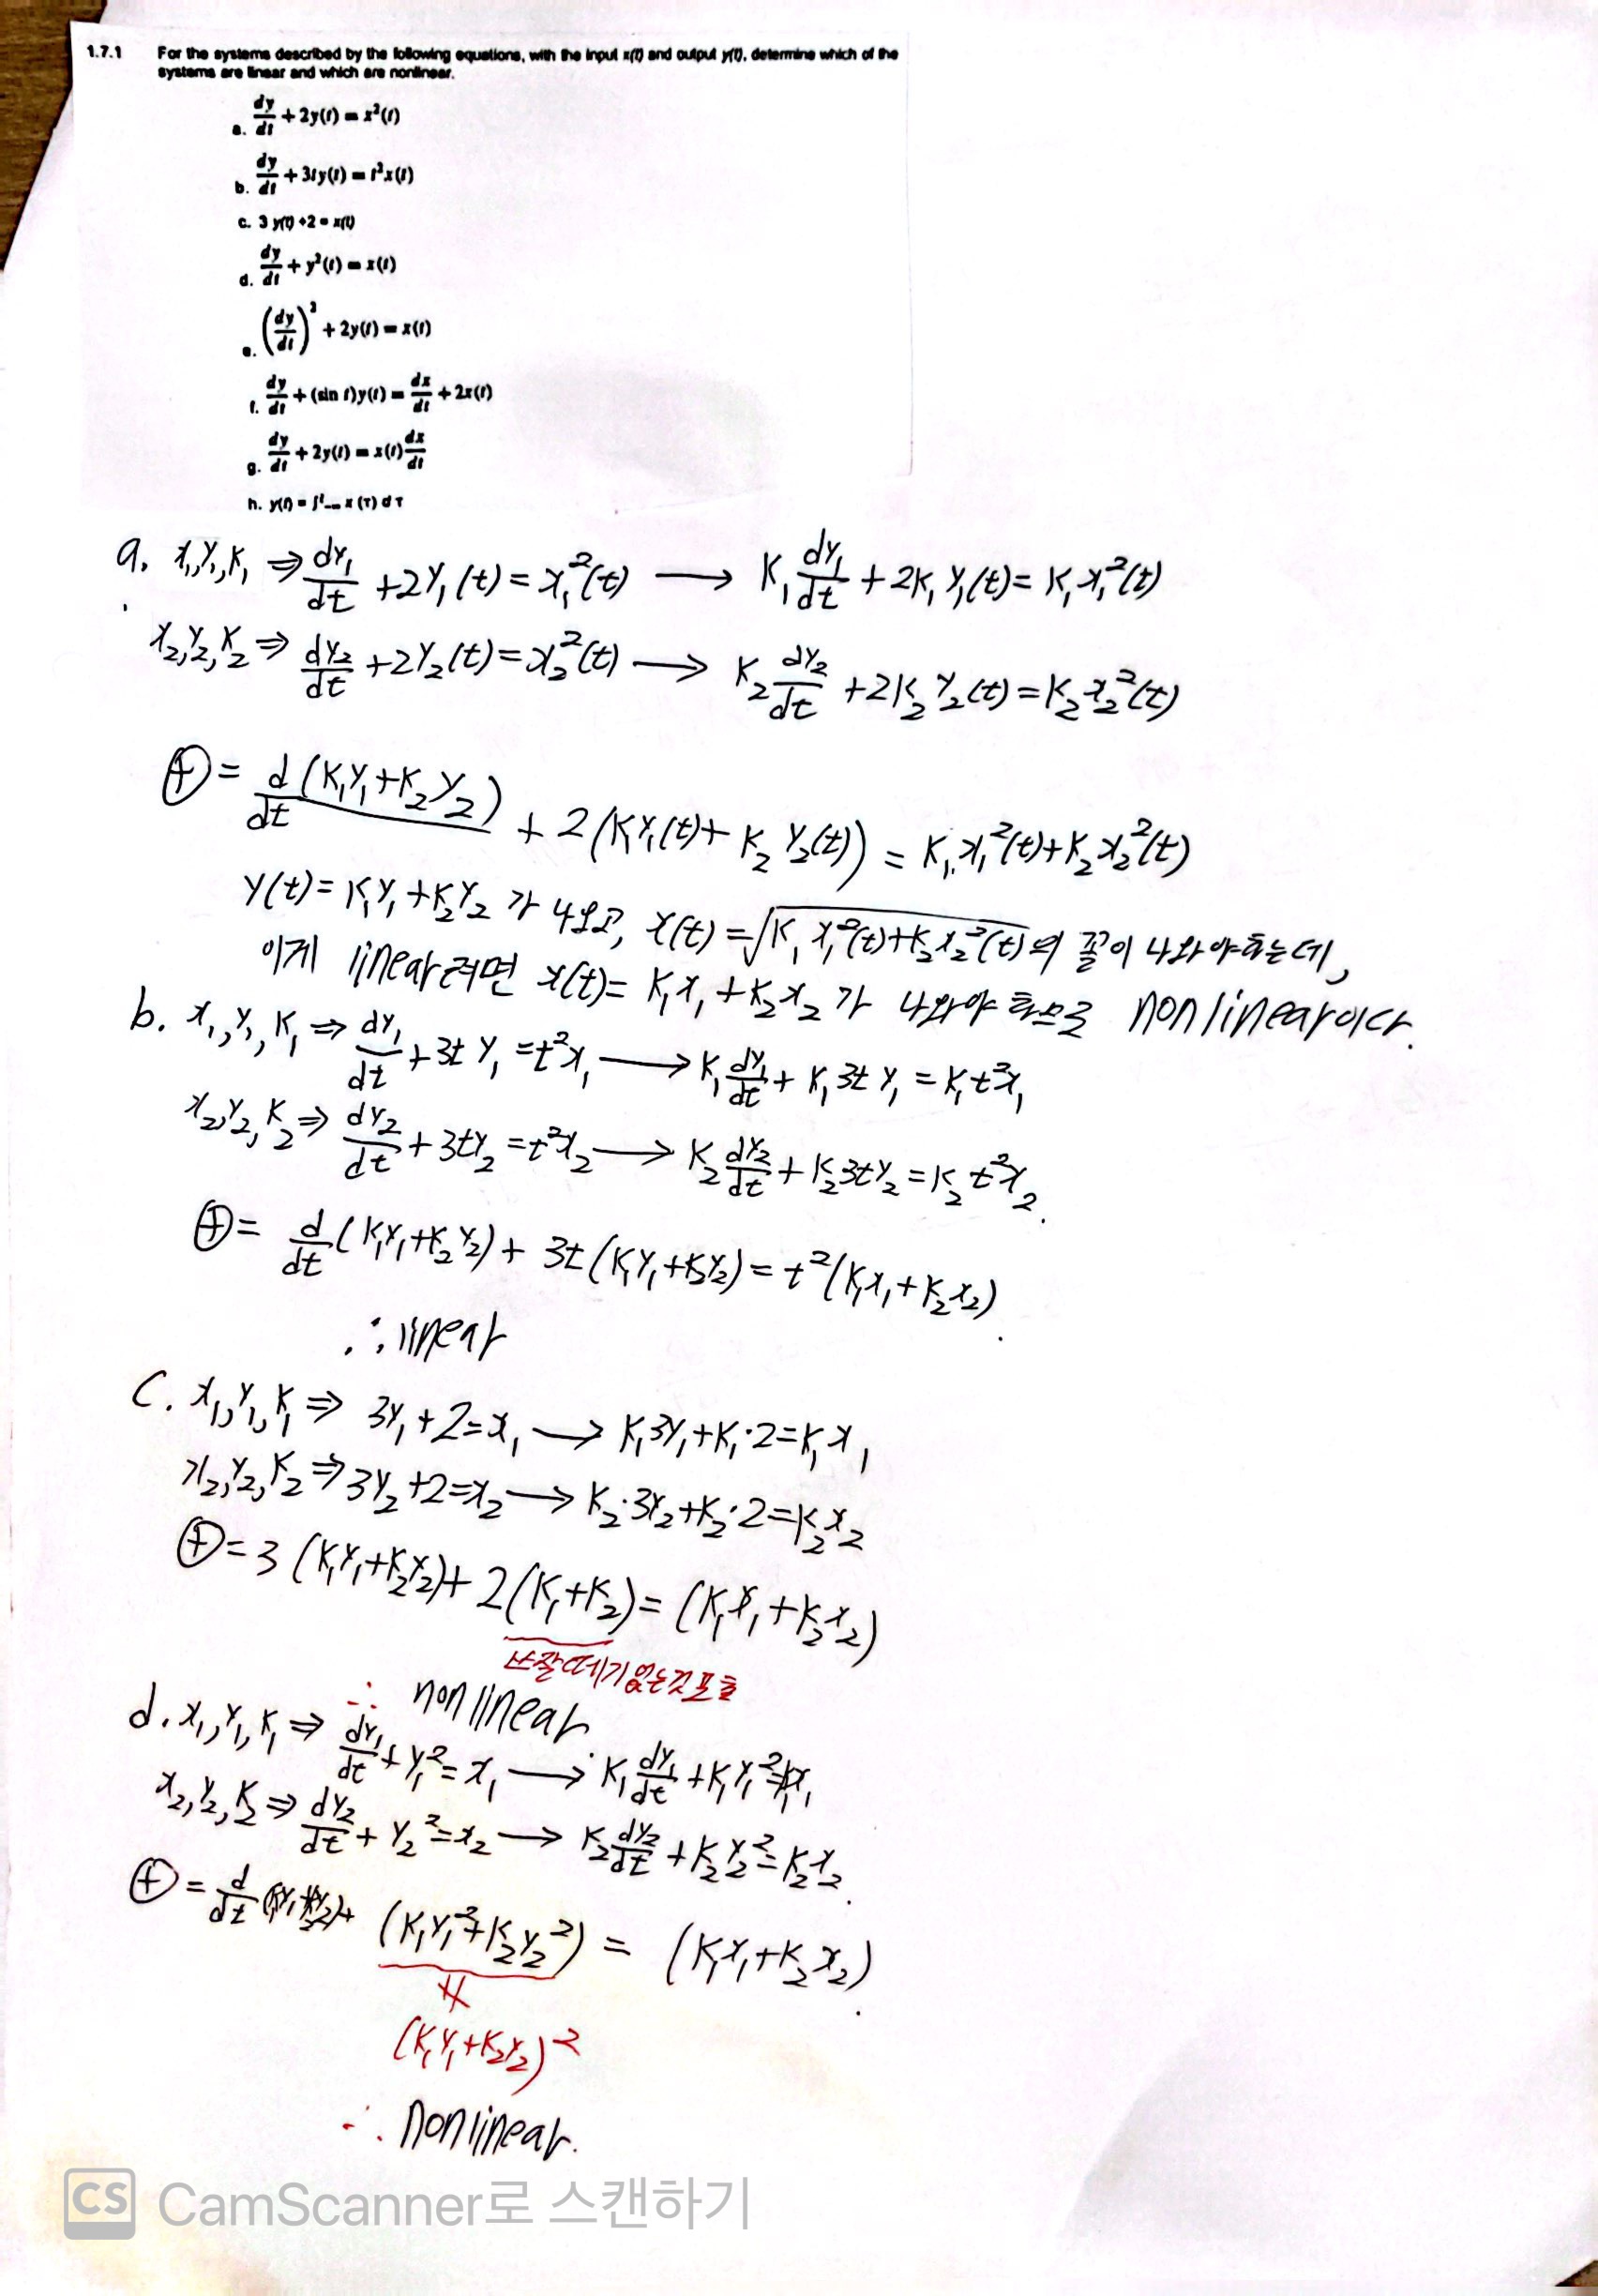 1.7.1 For the systems described by the following equations, with the input x(t) and output y(t), determine which of the
systems are linear and which are nonlinear.
a. dy/dt + 2y(t) = x²(t)
b. dy/dt + 3ty(t) = t²x(t)
c. 3 y(t) +2 = x(t)
d. dy/dt + y²(t) = x(t)
e. (dy/dt)² + 2y(t) = x(t)
f. dy/dt + (sin t)y(t) = dx/dt + 2x(t)
g. dy/dt + 2y(t) = x(t) dx/dt
h. y(t) = ∫ᵗ₋∞ x (τ) d τ
a. x₁, y₁, k₁ ⇒ dy₁/dt + 2y₁(t) = x₁²(t) → k₁ dy₁/dt + 2k₁y₁(t) = k₁x₁²(t)
x₂, y₂, k₂ ⇒ dy₂/dt + 2y₂(t) = x₂²(t) → k₂ dy₂/dt + 2k₂y₂(t) = k₂x₂²(t)
⊕ = d/dt (k₁y₁ + k₂y₂) + 2(k₁y₁(t) + k₂y₂(t)) = k₁x₁²(t) + k₂x₂²(t)
y(t) = k₁y₁ + k₂y₂ 가 나오고, x(t) = √(k₁x₁²(t) + k₂x₂²(t)) 의 꼴이 나와야하는데,
이게 linear려면 x(t) = k₁x₁ + k₂x₂ 가 나와야 하므로 nonlinear이다.
b. x₁, y₁, k₁ ⇒ dy₁/dt + 3t y₁ = t²x₁ → k₁ dy₁/dt + k₁3t y₁ = k₁t²x₁
x₂, y₂, k₂ ⇒ dy₂/dt + 3ty₂ = t²x₂ → k₂ dy₂/dt + k₂3ty₂ = k₂t²x₂.
⊕ = d/dt (k₁y₁ + k₂y₂) + 3t(k₁y₁ + k₂y₂) = t²(k₁x₁ + k₂x₂).
∴ linear
C. x₁, y₁, k₁ ⇒ 3y₁ + 2 = x₁ → k₁3y₁ + k₁·2 = k₁x₁
x₂, y₂, k₂ ⇒ 3y₂ + 2 = x₂ → k₂·3y₂ + k₂·2 = k₂x₂
⊕ = 3(k₁y₁ + k₂y₂) + 2(k₁ + k₂) = (k₁x₁ + k₂x₂)
∴ nonlinear.
d. x₁, y₁, k₁ ⇒ dy₁/dt + y₁² = x₁ → k₁ dy₁/dt + k₁y₁² = k₁x₁
x₂, y₂, k₂ ⇒ dy₂/dt + y₂² = x₂ → k₂ dy₂/dt + k₂y₂² = k₂x₂.
⊕ = d/dt (k₁y₁ + k₂y₂) + (k₁y₁² + k₂y₂²) = (k₁x₁ + k₂x₂).
≠
(k₁y₁ + k₂y₂)²
∴ nonlinear.
CS CamScanner로 스캔하기